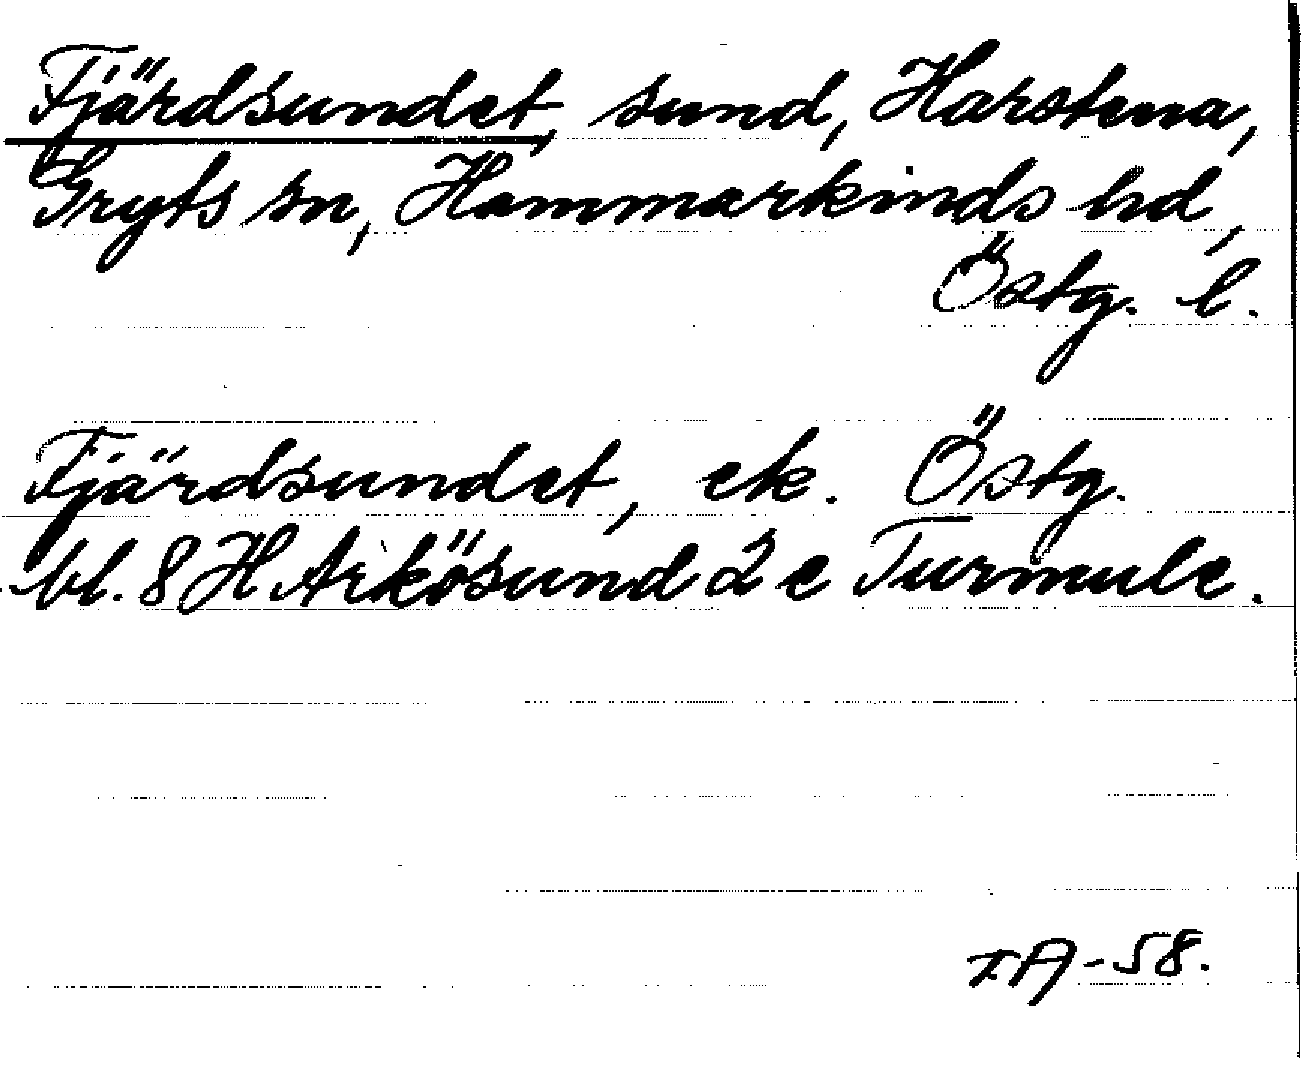 Fjärdsundet, sund, Harstena,
Gryts sn, Hammarkinds hd,
Östg. l.
Fjärdsundet, ek. Östg.
bl. 8 H Arkösund 2 e Turmule.
IA-58.